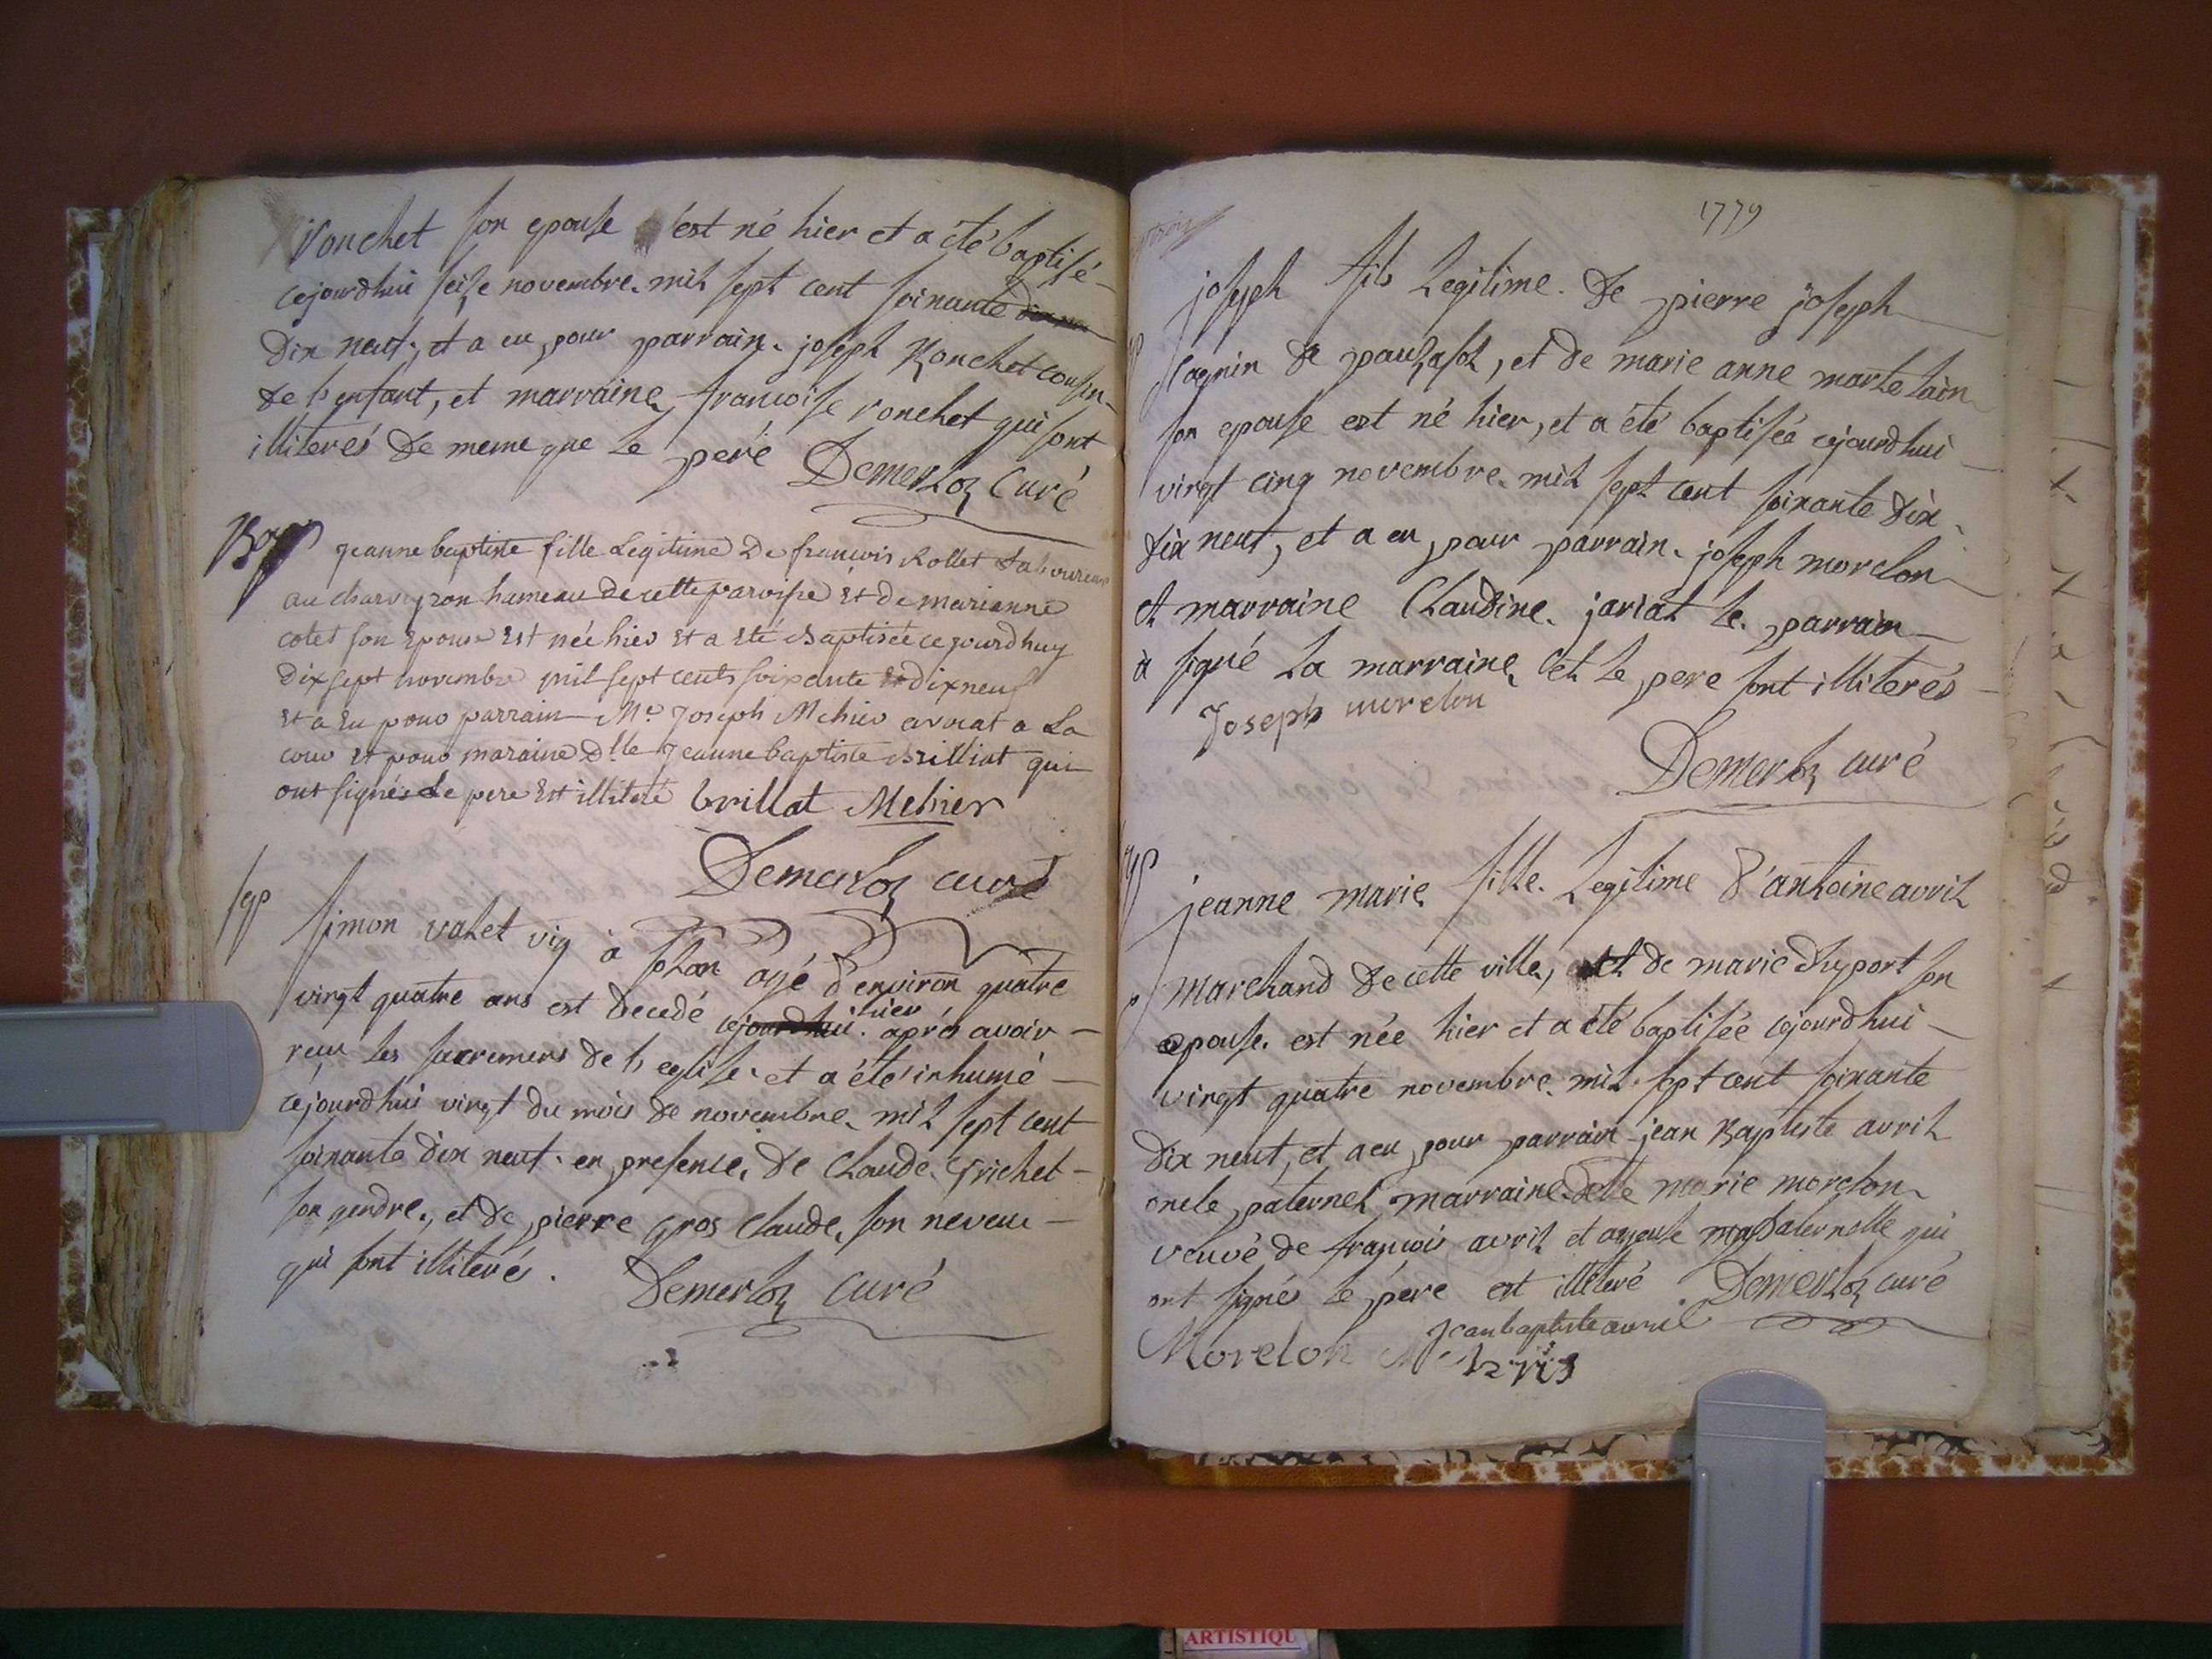 Ronchet son epouse est né hier et a été baptisé
cejourdhui seize novembre mil sept cent soixante
dix neuf, et a eu pour parrain joseph Ronchet cousin
de l'enfant, et marraine francoise ronchet qui sont
illiterés de meme que le peré Demerloz Curé
Bap
jeanne baptiste fille Legitime De francois Rollet Laboureur
au charveyron hameau de cette paroisse et de marianne
cotet son Epouse Est née hier Et a Eté Baptisée ce jourdhuy
dix sept novembre mil sept cents soixante Et dix neuf
Et a Eu pour parrain Me Joseph Mehier avocat a La
cour Et pour maraine dlle Jeanne baptiste Brillat qui
ont signés Le pere Est illiteré brillat Mehier
Demerloz curé
sep
simon valet vig à agé d'environ quatre
vingt quatre ans est decedé cejourdhui hier aprés avoir
reçu les sacremens de l'eglise et a été inhumé
cejourdhui vingt du mois de novembre mil sept cent
soixante dix neuf en presence de Claude Grichet
son gendre, et de pierre gros claude son neveu
qui sont illiterés. Demerloz Curé
1779
joseph fils Legitime de pierre joseph
de et de marie anne martelain
son epouse est né hier, et a été baptisée cejourdhui
vingt cinq novembre mil sept cent soixante dix
dix neuf, et a eu pour parrain joseph morelon
et marraine Claudine jariat le parrain
à signé La marraine et le pere sont illiterés
Joseph morelon
Demerloz curé
jeanne marie fille Legitime d'antoine avril
marchand de cette ville, et de marie duport son
epouse est née hier et a été baptisée cejourdhui
vingt quatre novembre mil sept cent soixante
dix neuf, et a eu pour parrain jean Baptiste avril
oncle paternel marraine delle marie morelon
veuve de françois avril et ayeule paternelle qui
ont signés le pere est illiteré Demerloz curé
jean baptiste avril
Morelon
ARTISTIQU